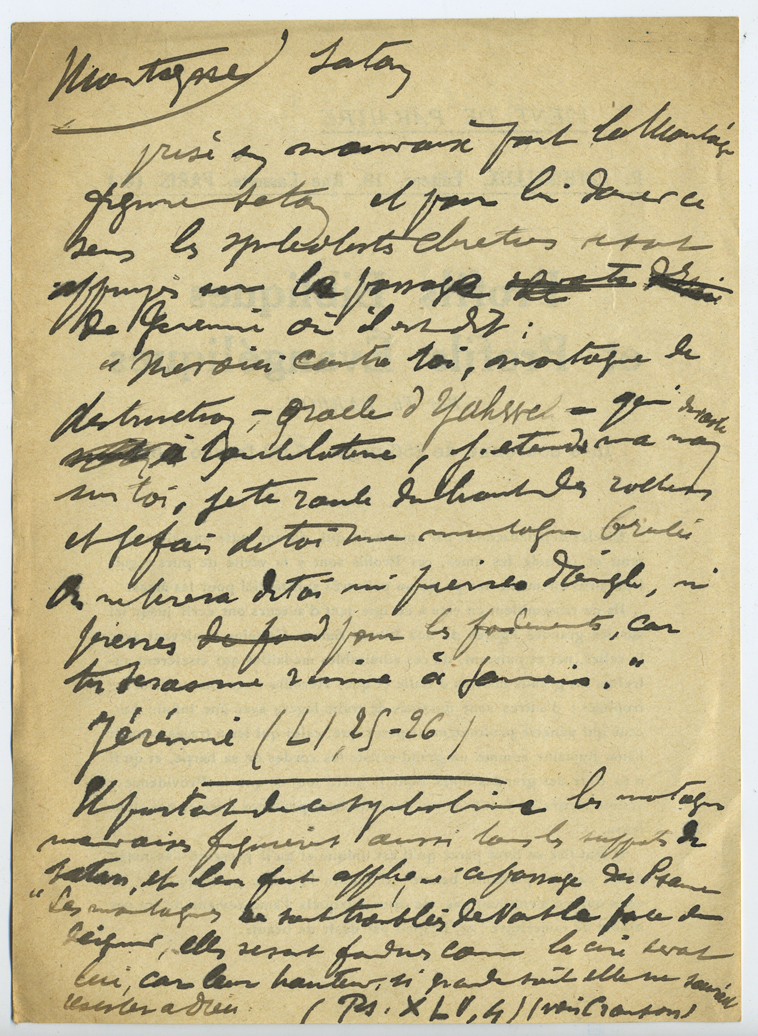 Montagne Satan
prise en mauvaise part la Montagne
figure Satan et pour lui donner ce
sens les symbolistes chrétiens se sont
appuyés sur le passage
de Jérémie où il est dit :
"Me voici contre toi, montagne de
destruction, - oracle d'Yahwé - qui dévaste
toute la terre, j'étends ma main
sur toi, je te roule du haut des rochers
et je fais de toi une montagne brulée
On ne tirera de toi ni pierres d'angle, ni
pierres de fond pour les fondements, car
tu seras une ruine à jamais."
Jérémie (LI, 25-26)
Et partant de ce symbolisme les montagnes
mauvaises figurèrent aussi tous les suppots de
Satan, et leur fut appliqué ce passage du Psaume
"Les montagnes se sont troublées devant la face du
Seigneur, elles seront fondues comme la cire devant
lui, car leur hauteur, si grande soit elle ne saurait
résister a Dieu (Ps. XLV, 4) (voir